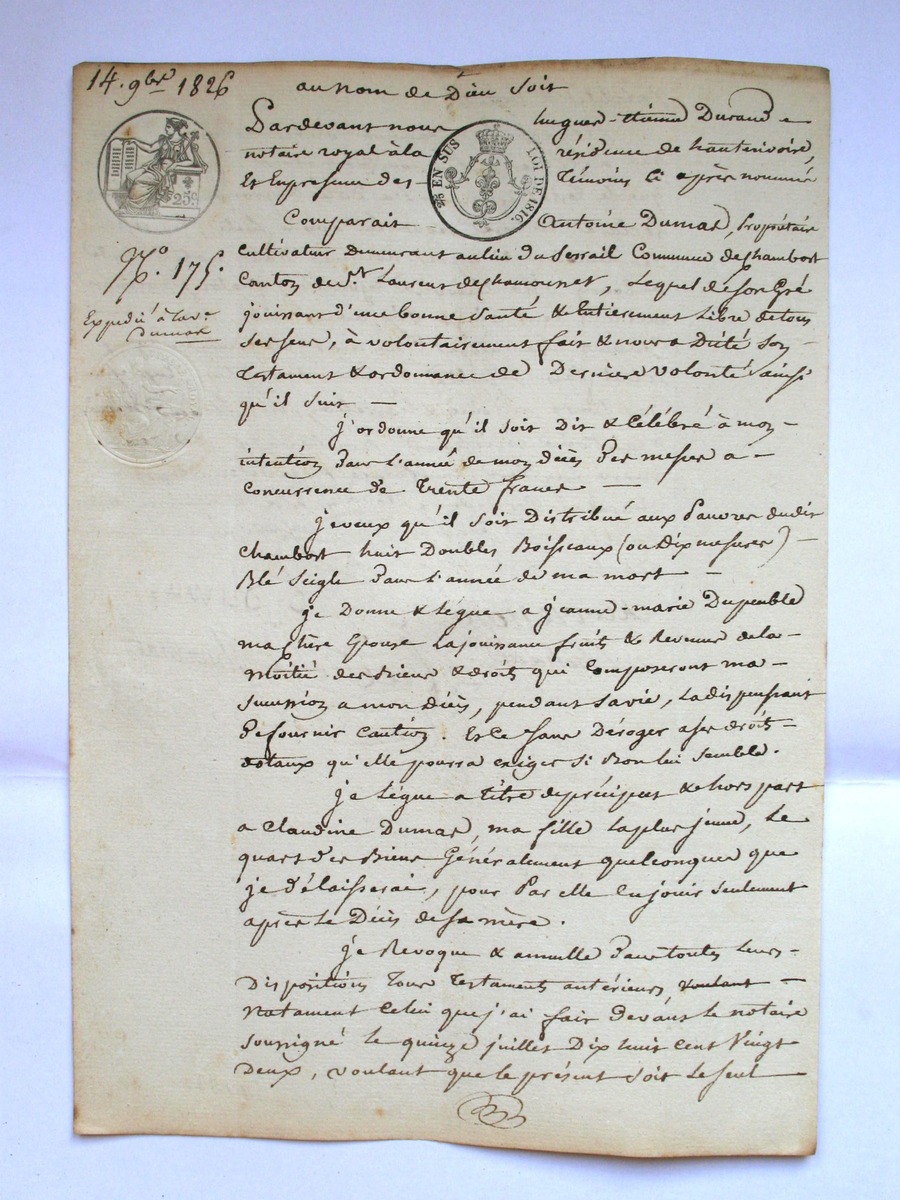 14. 9bre 1826
au nom de Dieu Soit
Pardevant nous hugues-étienne Durand
notaire royal à la résidence de hauterivoire,
Et Enpresence des témoins Ci après nommés
25c
2/5 EN SUS LOI DE 1816.
Comparait Antoine Dumas, propriétaire
Cultivateur Demeurant aulieu du Serrail Commune de Chambost
Canton de St Laurent de Chamousset, Lequel de son Gré
jouissant d'une bonne Santé & Entierement Libre de tous
Ses Sens, à volontairement fait & nous a Dicté Son
Testament & ordonnance de Derniere volonté ainsi
qu'il suit —
No. 175.
Expedié à la ve.
Dumas
j'ordonne qu'il soit Dit & Célébré à mon
intention Dans L'année de mon décès Des messes a
Concurrence de Trente francs —
je veux qu'il soit Distribué aux Pauvres dudit
Chambost huit Doubles Boisseaux (ou Dix mesures)
Blé Seigle Dans L'année de ma mort —
je Donne & Lègue a jeanne-marie Dupeuble
ma Chère Epouse La jouissance fruits & Revenus de la
Moitié des Biens & droits qui Composeront ma
Succession a mon décès, pendant Sa vie, La dispensant
De fournir Caution. Et Ce Sans Déroger a ses droits
dotaux qu'elle pourra exiger Si Bon lui Semble.
je Lègue a titre de préciput & hors part
a Claudine Dumas, ma fille La plus jeune, Le
quart des Biens Généralement quelconques que
je délaisserai, pour Par elle En jouir Seulement
après Le Décès de Sa mère.
je Revoque & annulle Dans toutes Leurs
Dispositions Tous Testaments antérieurs voulant
Notament Celui que j'ai fait devant Le notaire
Soussigné Le quinze juillet Dix huit Cent Vingt
Deux, voulant que le présent Soit Le Seul